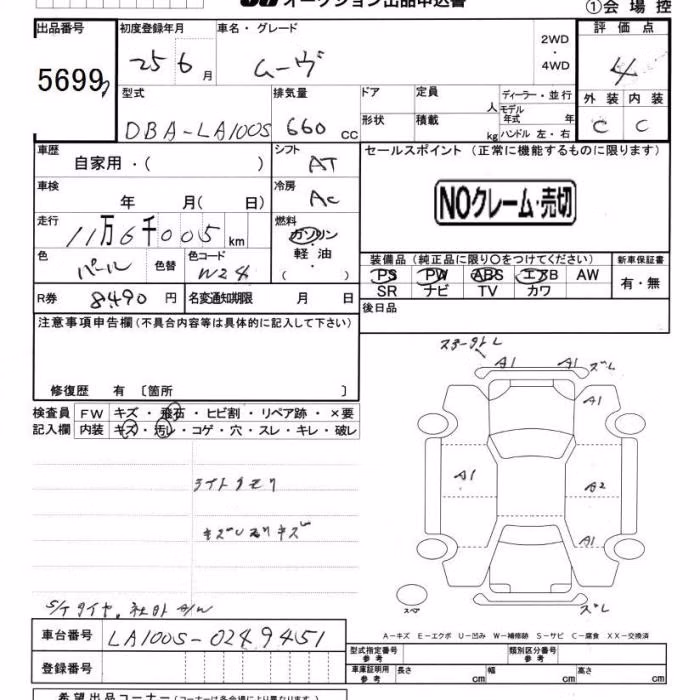 オークション出品申込書
①会場控
出品番号
5699
初度登録年月
25 6 月
車名・グレード
ムーヴ
2WD
・
4WD
評価点
4
外装 内装
C C
型式
DBA-LA100S
排気量
660 cc
ドア
定員
人
形状
積載
kg
ディーラー・並行
モデル
年式 年
ハンドル 左・右
車歴
自家用・( )
シフト
AT
車検
年 月( 日)
冷房
AC
走行
11万6千005 km
燃料
ガソリン
・
軽油
( )
色
パール
色替
色コード
W24
R券 8490 円
名変通知期限 月 日
セールスポイント (正常に機能するものに限ります)
NOクレーム・売切
装備品 (純正品に限り○をつけてください)
PS PW ABS エアB AW
SR ナビ TV カワ
新車保証書
有・無
後日品
注意事項申告欄(不具合内容等は具体的に記入して下さい)
修復歴 有 〔箇所 〕
検査員 FW キズ・飛石・ヒビ割・リペア跡・×要
記入欄 内装 キズ・汚レ・コゲ・穴・スレ・キレ・破レ
ライトクモリ
A1 A1 ズレ
A1
A1
A2
A1
ズレ
スペア
S/Tタイヤ、社外A/W
A-キズ E-エクボ U-凹み W-補修跡 S-サビ C-腐食 XX-交換済
車台番号 LA100S-0249451
登録番号
型式指定番号
参考
類別区分番号
参考
車庫証明用
参考
長さ cm 幅 cm 高さ cm
希望出品コーナー(コーナーは各会場により異なります)